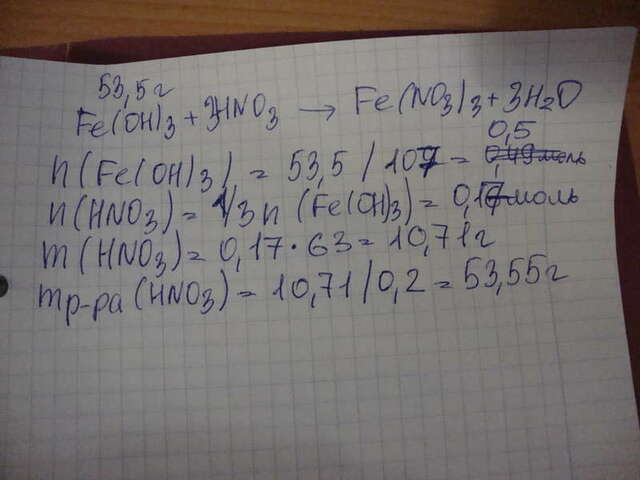 53,5 г
Fe(OH)3 + 3HNO3 → Fe(NO3)3 + 3H2O
0,5
n(Fe(OH)3) = 53,5 / 107 = 0,49 моль
n(HNO3) = 1/3 n (Fe(OH)3) = 0,17 моль
m(HNO3) = 0,17 · 63 = 10,71 г
mр-ра (HNO3) = 10,71 / 0,2 = 53,55 г